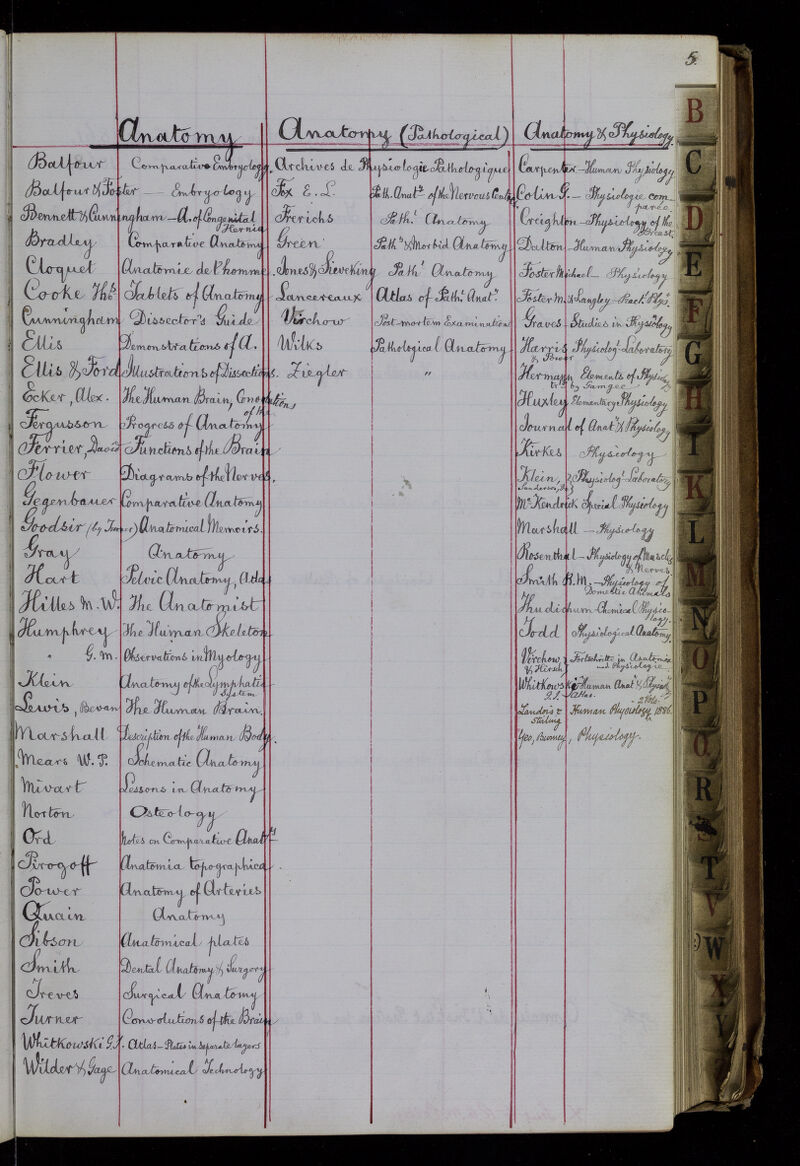 5.
Anatomy
Balfour Comparative Embryology.
Balfour & Foster — Embryology
Bennett & Cunningham — A. of Congenital Hernia
Bradley Comparative Anatomy
Cloquet Anatomie de l'homme.
Cooke Thos. Tablets of Anatomy
Cunningham Dissector's Guide
Ellis Demonstrations of A.
Ellis & Ford Illustrations of Dissections.
Ecker, Alex. The Human Brain, Convolutions of the
Fergusson Progress of Anatomy
Ferrier, David Functions of the Brain
Flower Diagrams of the Nerves.
Gegenbauer Comparative Anatomy
Goodsir (by Turner) Anatomical Memoirs.
Gray Anatomy
Hart Pelvic Anatomy, Atlas
Hilles M. W. The Anatomist
Humphrey The Human Skeleton
" G. M. Observations in Myology
Klein Anatomy of the Lymphatic System
Lewis, Bevan The Human Brain.
Marshall Description of the Human Body.
Mears W. P. Schematic Anatomy
Mivart Lessons in Anatomy
Norton Osteology
Ord Notes on Comparative Anaty
Pirogoff Anatomia topographica.
Power Anatomy of Arteries
Quain Anatomy
Sibson Anatomical plates
Smith Dental Anatomy & Surgery
Treves Surgical Anatomy
Turner Convolutions of the Brain
Whitkowski G. J. Atlas — Plates in separate layers
Wilder & Gage Anatomical Technology
Anatomy (Pathological)
Archives de Physiologie Pathologique
Fox E. L. Path. Anaty of the Nervous Centres
Frerichs Pathl. Anatomy
Green Pathy & Morbid Anatomy
Jones & Sieveking Pathl Anatomy
Lancereaux Atlas of Pathl Anaty.
Virchow Post-mortem Examination
Wilks Pathological Anatomy
Ziegler "
Anatomy & Physiology
Carpenter — Human Physiology
Colin G. — Physiologie comparée
Creighton — Physiology of the Breast.
Dalton — Human Physiology
Foster Michael — Physiology
Foster M. & Langley — Pract. Phys.
Graves — Studies in Physiology
Harris & Power Physiologl Laboratory
Hermann Elements of Physiology trd by Gamgee
Huxley Elementary Physiology
Journal of Anaty & Physiology
Kirkes Physiology
Klein, Sanderson, &c } Physiologl Laboratory
McKendrick Special Physiology
Marshall — Physiology
Rosenthal — Physiology of Muscles & Nerves
Smith R. M. — Physiology of Domestic Animals
Thudichum — Chemical Physiology.
Todd Physiological Anatomy.
Virchow & Hirsch } Fortschritte in Anatomie und Physiologie
Whitkowski G. J. Human Anat & Physioly Atlas. 2 Vols.
Landois & Stirling Human Physiology 1886.
Yeo, Burney, Physiology.
B
C
D
E
F
G
H
I
K
L
M
N
O
P
Q
R
T
V
W
X
Y